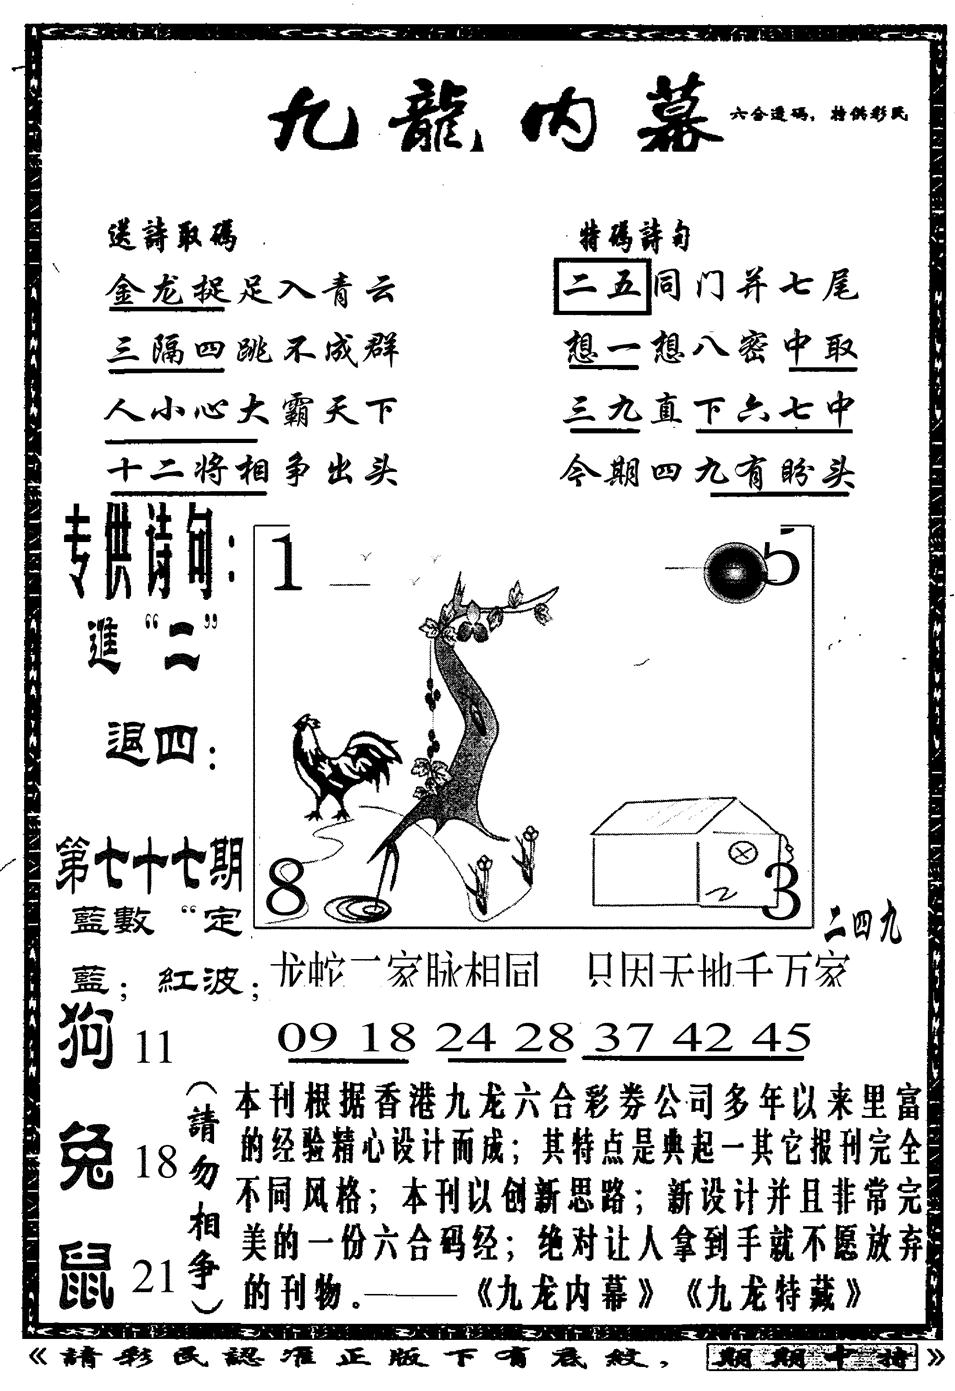 九龍内幕 六合透碼，特供彩民
送詩取碼
金龙捉足入青云
三隔四跳不成群
人小心大霸天下
十二将相争出头
特碼詩句
二五同门并七尾
想一想八密中取
三九直下六七中
今期四九有盼头
专供诗句：
進“二”
退四：
第七十七期
藍數“定
藍；紅波；
1
5
8
3
二四九
龙蛇二家脉相同 只因天地千万家
09 18 24 28 37 42 45
狗 11
兔 18
鼠 21
（請勿相争）
本刊根据香港九龙六合彩券公司多年以来里富
的经验精心设计而成；其特点是典起一其它报刊完全
不同风格；本刊以创新思路；新设计并且非常完
美的一份六合码经；绝对让人拿到手就不愿放弃
的刊物。——《九龙内幕》《九龙特藏》
《請彩民認准正版下有底紋，期期中特》